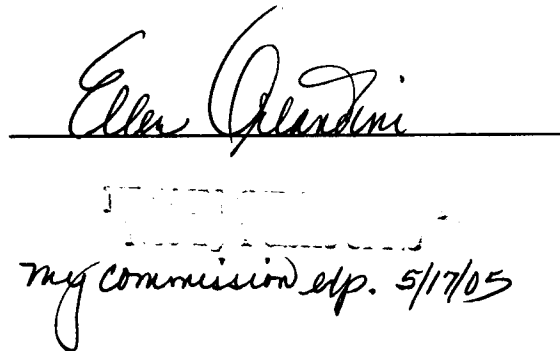 Ellen Orlandini
my commission exp. 5/17/05